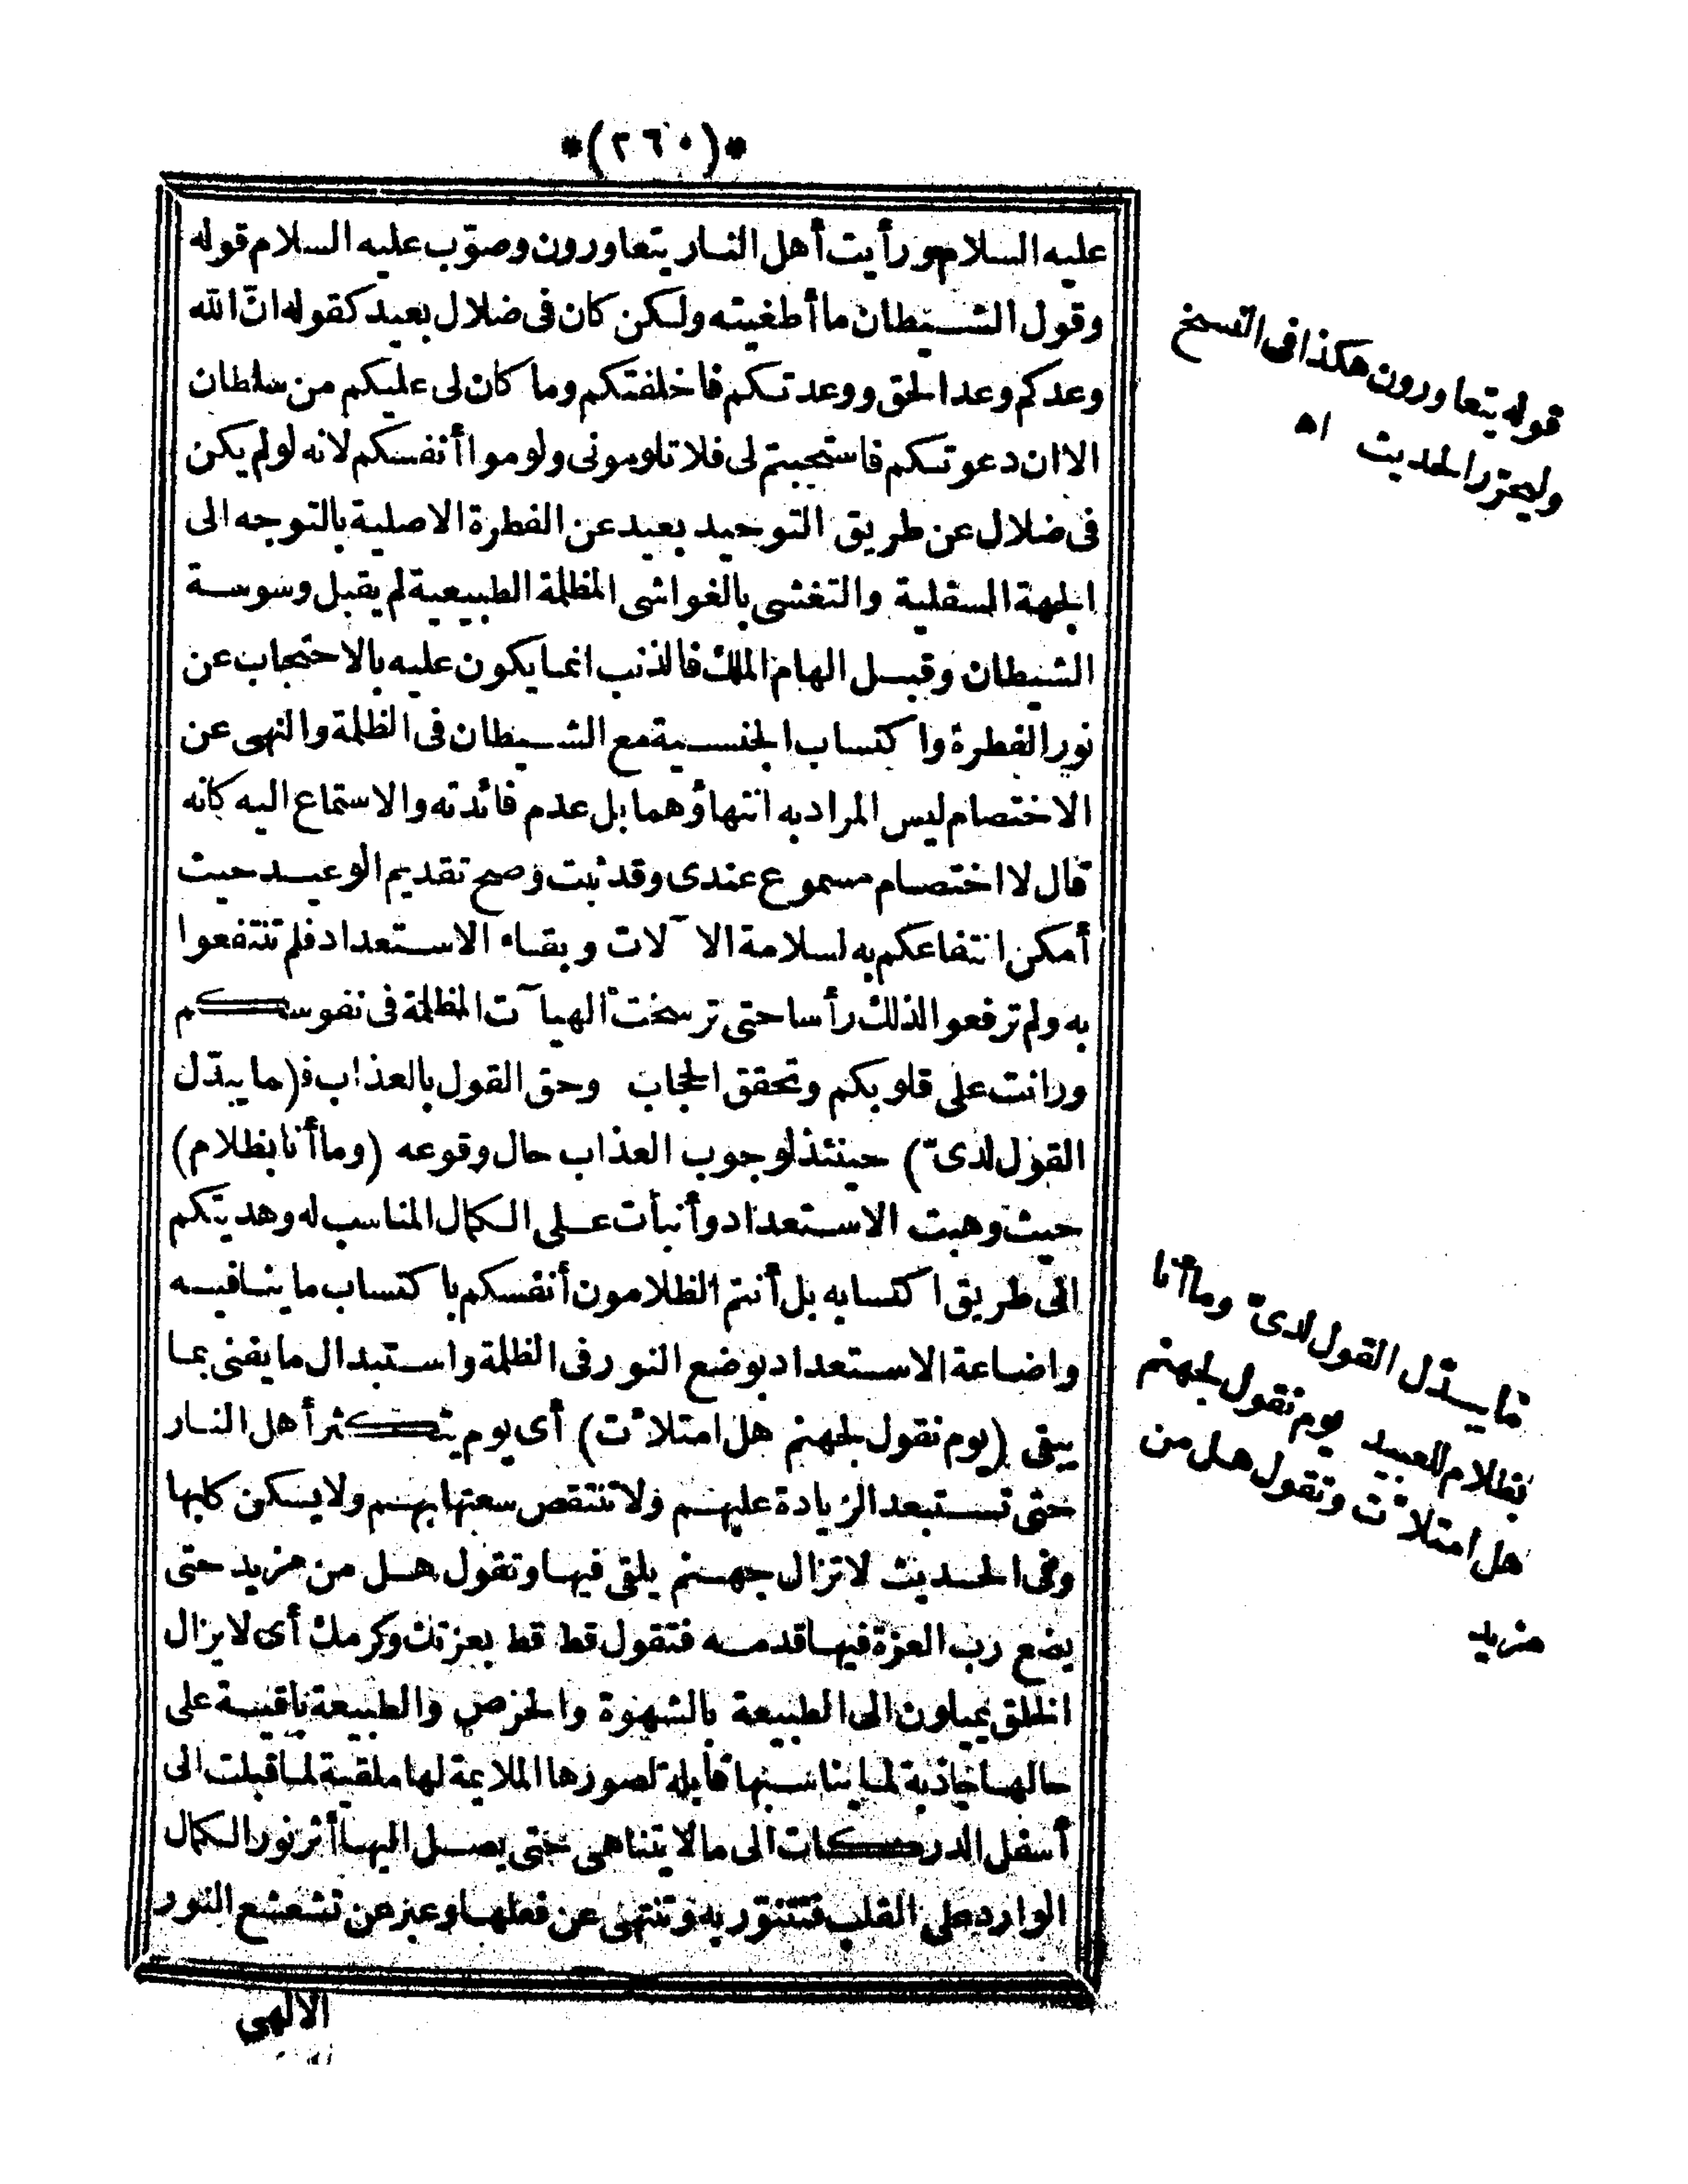 *(٢٦٠)*
عليه السلام ورأيت أهل النار يتعاورون وصوّب عليه السلام قوله
وقول الشيطان ما أطغيته ولكن كان فى ضلال بعيد كقوله انّ الله
وعدكم وعد الحق ووعدتكم فاخلفتكم وما كان لى عليكم من سلطان
الا ان دعوتكم فاستجبتم لى فلا تلومونى ولوموا أنفسكم لانه لو لم يكن
فى ضلال عن طريق التوحيد بعيد عن الفطرة الاصلية بالتوجه الى
الجهة السفلية والتغشى بالغواشى المظلمة الطبيعية لم يقبل وسوسة
الشيطان وقبل الهام الملك فالذنب انما يكون عليه بالاحتجاب عن
نور الفطرة واكتساب الجنسية مع الشيطان فى الظلمة والنهى عن
الاختصام ليس المراد به انتهاؤهما بل عدم فائدته والاستماع اليه كانه
قال لا اختصام مسموع عندى وقد ثبت وصح تقديم الوعيد حيث
أمكن انتفاعكم به لسلامة الآلات وبقاء الاستعداد فلم تنتفعوا
به ولم ترفعوا لذلك رأسا حتى ترسخت الهيآت المظلمة فى نفوسكم
ورانت على قلوبكم وتحقق الحجاب وحق القول بالعذاب ف(ما يبدّل
القول لدىّ) حينئذ لوجوب العذاب حال وقوعه (وما أنا بظلام)
حيث وهبت الاستعداد وأنبأت على الكمال المناسب له وهديتكم
الى طريق اكتسابه بل أنتم الظلامون أنفسكم باكتساب ما ينافيه
واضاعة الاستعداد بوضع النور فى الظلمة واستبدال ما يفنى بما
يبقى (يوم نقول لجهنم هل امتلأت) أى يوم يتكثر أهل النار
حتى تستبعد الزيادة عليهم ولا تنتقص سعتها بهم ولا يسكن كلبها
وفى الحديث لا تزال جهنم يلقى فيها وتقول هل من مزيد حتى
يضع رب العزة فيها قدمه فتقول قط قط بعزتك وكرمك أى لا يزال
الخلق يميلون الى الطبيعة بالشهوة والحرص والطبيعة باقية على
حالها جاذبة لما يناسبها قابلة لصورها الملايمة لها ملقية لما قبلت الى
أسفل الدركات الى ما لا يتناهى حتى يصل اليها أثر نور الكمال
الوارد على القلب فتتنوّر به وتنتهى عن فعلها وعبر عن تشعشع النور
الالهى
قوله يتعاورون هكذا فى النسخ
وليحرّر الحديث اه
ما يبدّل القول لدىّ وما أنا
بظلام للعبيد يوم نقول لجهنم
هل امتلأت وتقول هل من
مزيد